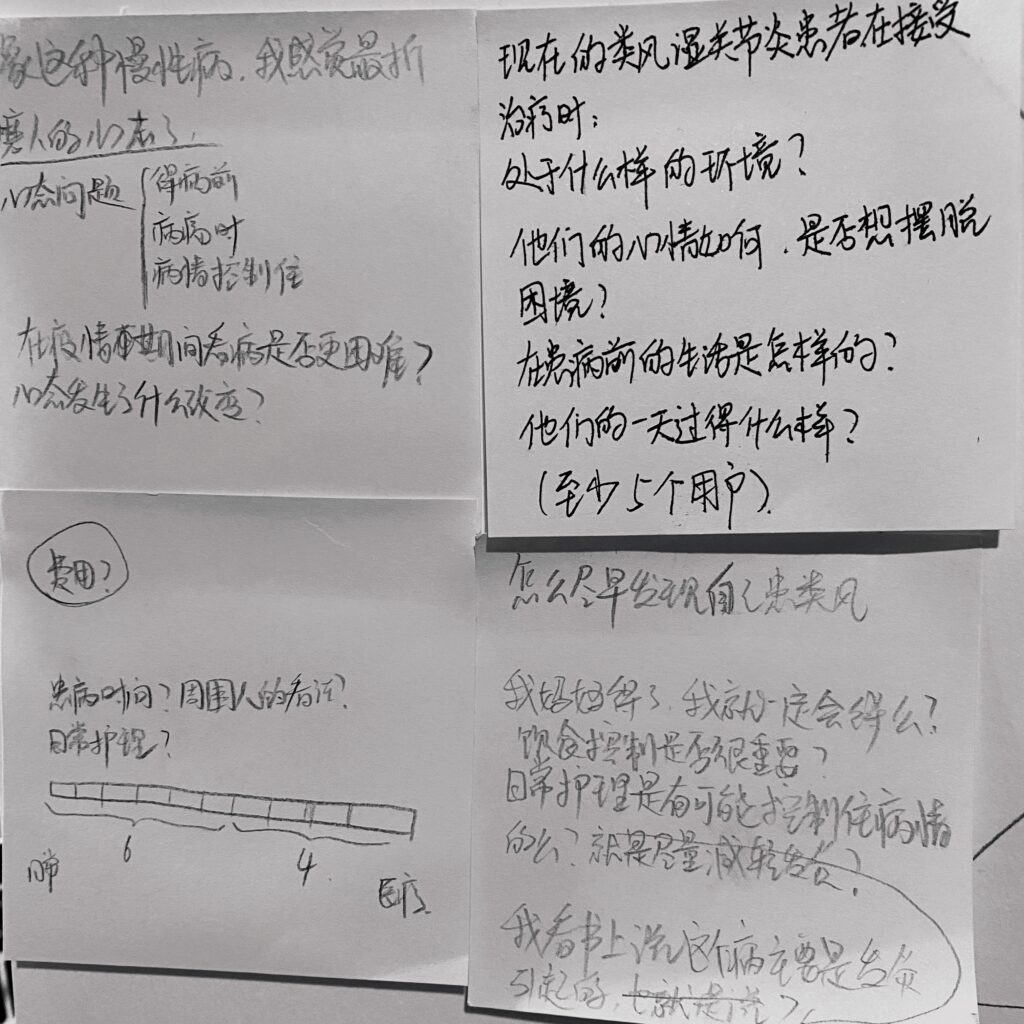 像这种慢性病，我感觉最折
磨人的心态了，
心态问题
得病前
病痛时
病情控制住
在疫情期间看病是否更困难？
心态发生了什么改变？
现在的类风湿关节炎患者在接受
治疗时：
处于什么样的环境？
他们的心情如何，是否想摆脱
困境？
在患病前的生活是怎样的？
他们的一天过得什么样？
（至少5个用户）
费用？
患病时间？周围人的看法？
日常护理？
6
4
日常
医疗
怎么尽早发现自己患类风
我妈妈得了，我就一定会得么？
饮食控制是否很重要？
日常护理是有可能控制住病情
的么？就是尽量减轻发炎？
我看书上说这个病主要是发炎
引起的，也就是说？